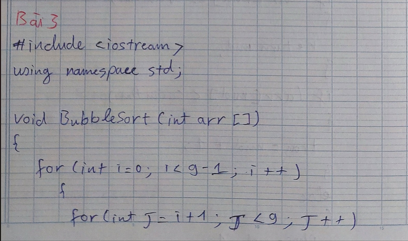 Bài 3
#include <iostream>
using namespace std;
void BubbleSort (int arr [])
{
for (int i=0; i<9-1; i++)
{
for(int J=i+1; J<9; J++)